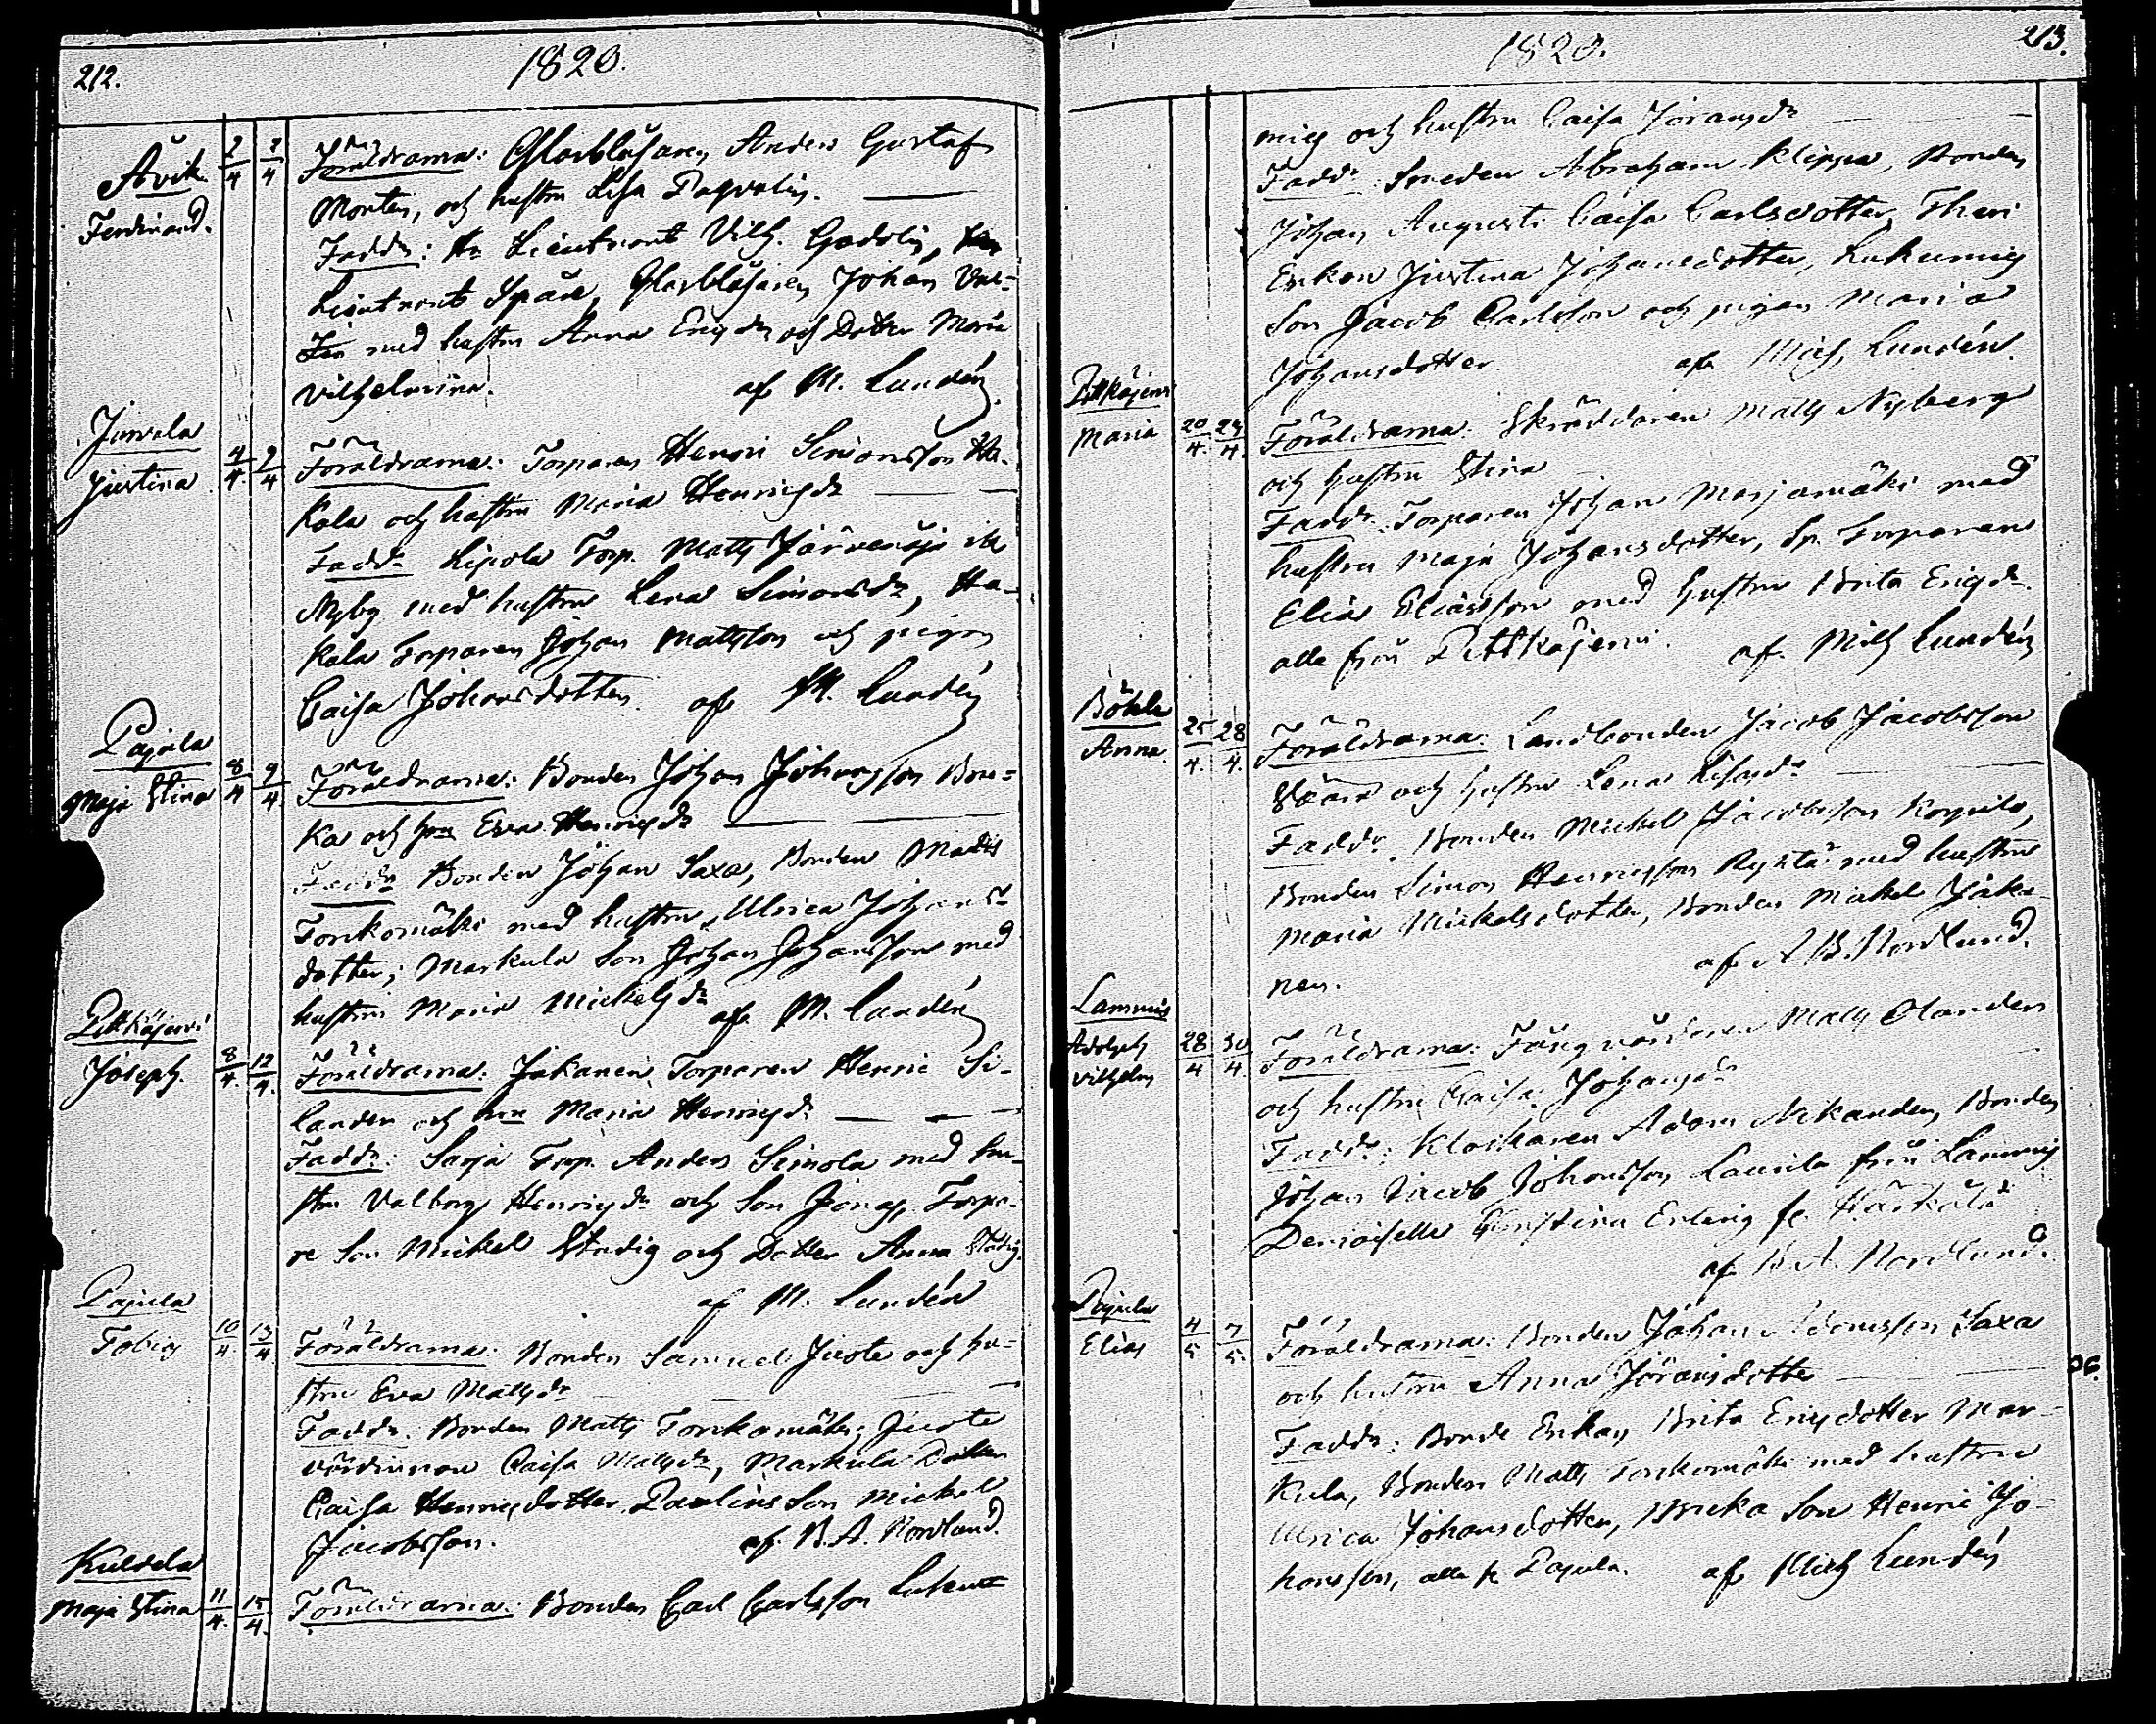 212.
1820.
Åvik
Ferdinand.
2/4 2/4
Föräldrarna: Glasblåsaren Anders Gustaf
Monten, och hustru Lisa Pagvalin.
Fadd: Hr Lieutnant Vilh. Gadolin,
Lieutnant Spåre, Glasblåsaren Johan
med hustru Anna Ericsdr och Dotter Maria
Vilhelmina. af M. Lundén
Jurvala
Justina
4/4 9/4
Föräldrarna: Torparen Henric Simonsson Ha-
kala och hustru Maria Henricsdr
Fadd: Lipola Torp. Matts
Nyby med hustru Lena Simonsdr, Ha-
kala Torparen Johan Mattsson och pigan
Caisa Johansdotter. af M. Lundén
Pajula
Maja Stina
8/4 9/4
Föräldrarna: Bonden Johan Johansson Bru-
ka och hru Eva Henricsdr
Fadd: Bonden Johan Saxa, Bonden Matts
Torkomäki med hustru Ulrica Johans-
dotter; Markula Son Johan Johansson med
hustru Maria Mickelsdr af M. Lundén
Pitkäjervi
Joseph.
8/4. 12/4.
Föräldrarna: Jakanen Torparen Henric Si-
lander och hru Maria Henricsdr
Fadd: Sarja Torp. Anders Simola med hu-
stru Valborg Henricsdr och Son Jonas, Torpa-
re Son Mickel Stadig och Dotter Anna Stadig.
af M. Lundén
Pajula
Tobias
10/4. 13/4
Föräldrarna: Bonden Samuel Juote och hu-
stru Eva Mattsdr
Fadd: Bonden Matts Torkomäki, Juote
värdinnan Caisa Mattsdr, Markula Dotter
Caisa Henricsdotter, Paulins Son Mickel
Jacobsson. af B. A. Nordlund.
Kuldela
Maja Stina
11/4. 15/4.
Föräldrarna: Bonden Carl Carlsson Lukum
213.
1820.
mies och hustru Caisa Göransdr
Fadd: Smeden Abraham Klippa, Bonden
Johan August. Caisa Carlsdotter,
Enkan Justina Johansdotter, Lukumies
Son Jacob Carlsson och pigan Maria
Johansdotter. af Mich. Lundén.
Pitkäjervi
Maria
20/4. 24/4.
Föräldrarna: Skräddaren Matts Nyberg
och hustru Stina
Fadd: Torparen Johan Marjamäki med
hustru Maja Johansdotter, Sp. Torparen
Elias Eliasson med hustru Brita Ericsdr.
alla från Pitkäjervi. af Mich Lundén
Böhle
Anna.
25/4. 28/4.
Föräldrarna: Landbonden Jacob Jacobsson
och hustru Lena
Fadd: Bonden Mickel Jacobsson
Bonden Simon Henricsson med hustru
Maria Mickelsdotter, Bonden Mickel Jaka-
nen. af A B. Nordlund.
Lammis
Adolph
Vilhelm
28/4 30/4.
Föräldrarna: Fångvårdaren Matts Olander
och hustru Caisa Johansdr
Fadd: Klockaren Adam Nikander, Bonden
Johan Jacob Johansson Laurila från Lammis
Demoiselle Christina Erling fr. Härkälä
af B A. Nordlund.
Pajula
Elias
4/5 7/5.
Föräldrarna: Bonden Johan Adamsson Saxa
och hustru Anna Göransdotter
Fadd: Bonde Enkan Brita Ericsdotter Mar-
kula, Bonden Matts Torkomäki med hustru
Ulrica Johansdotter, Bruka Son Henric Jo-
hansson, alla fr Pajula. af Mich Lundén